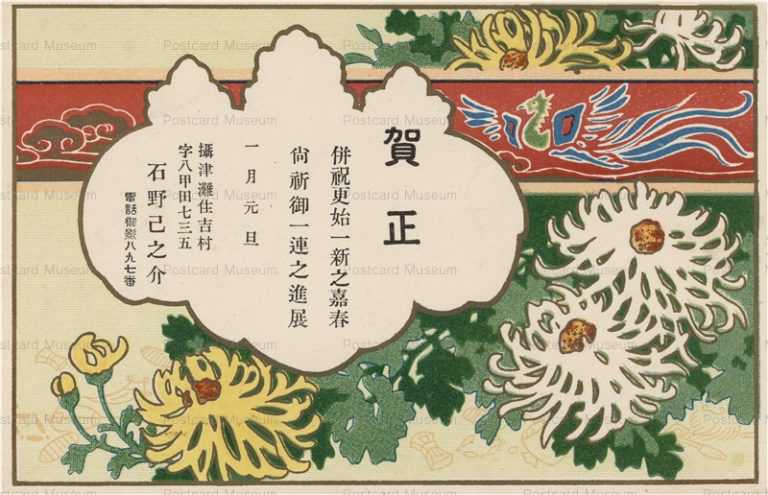 賀正
併祝更始一新之嘉春
尙祈御一連之進展
一月元旦
攝津灘住吉村
字八甲田七三五
石野己之介
電話御影八九七番
Postcard Museum